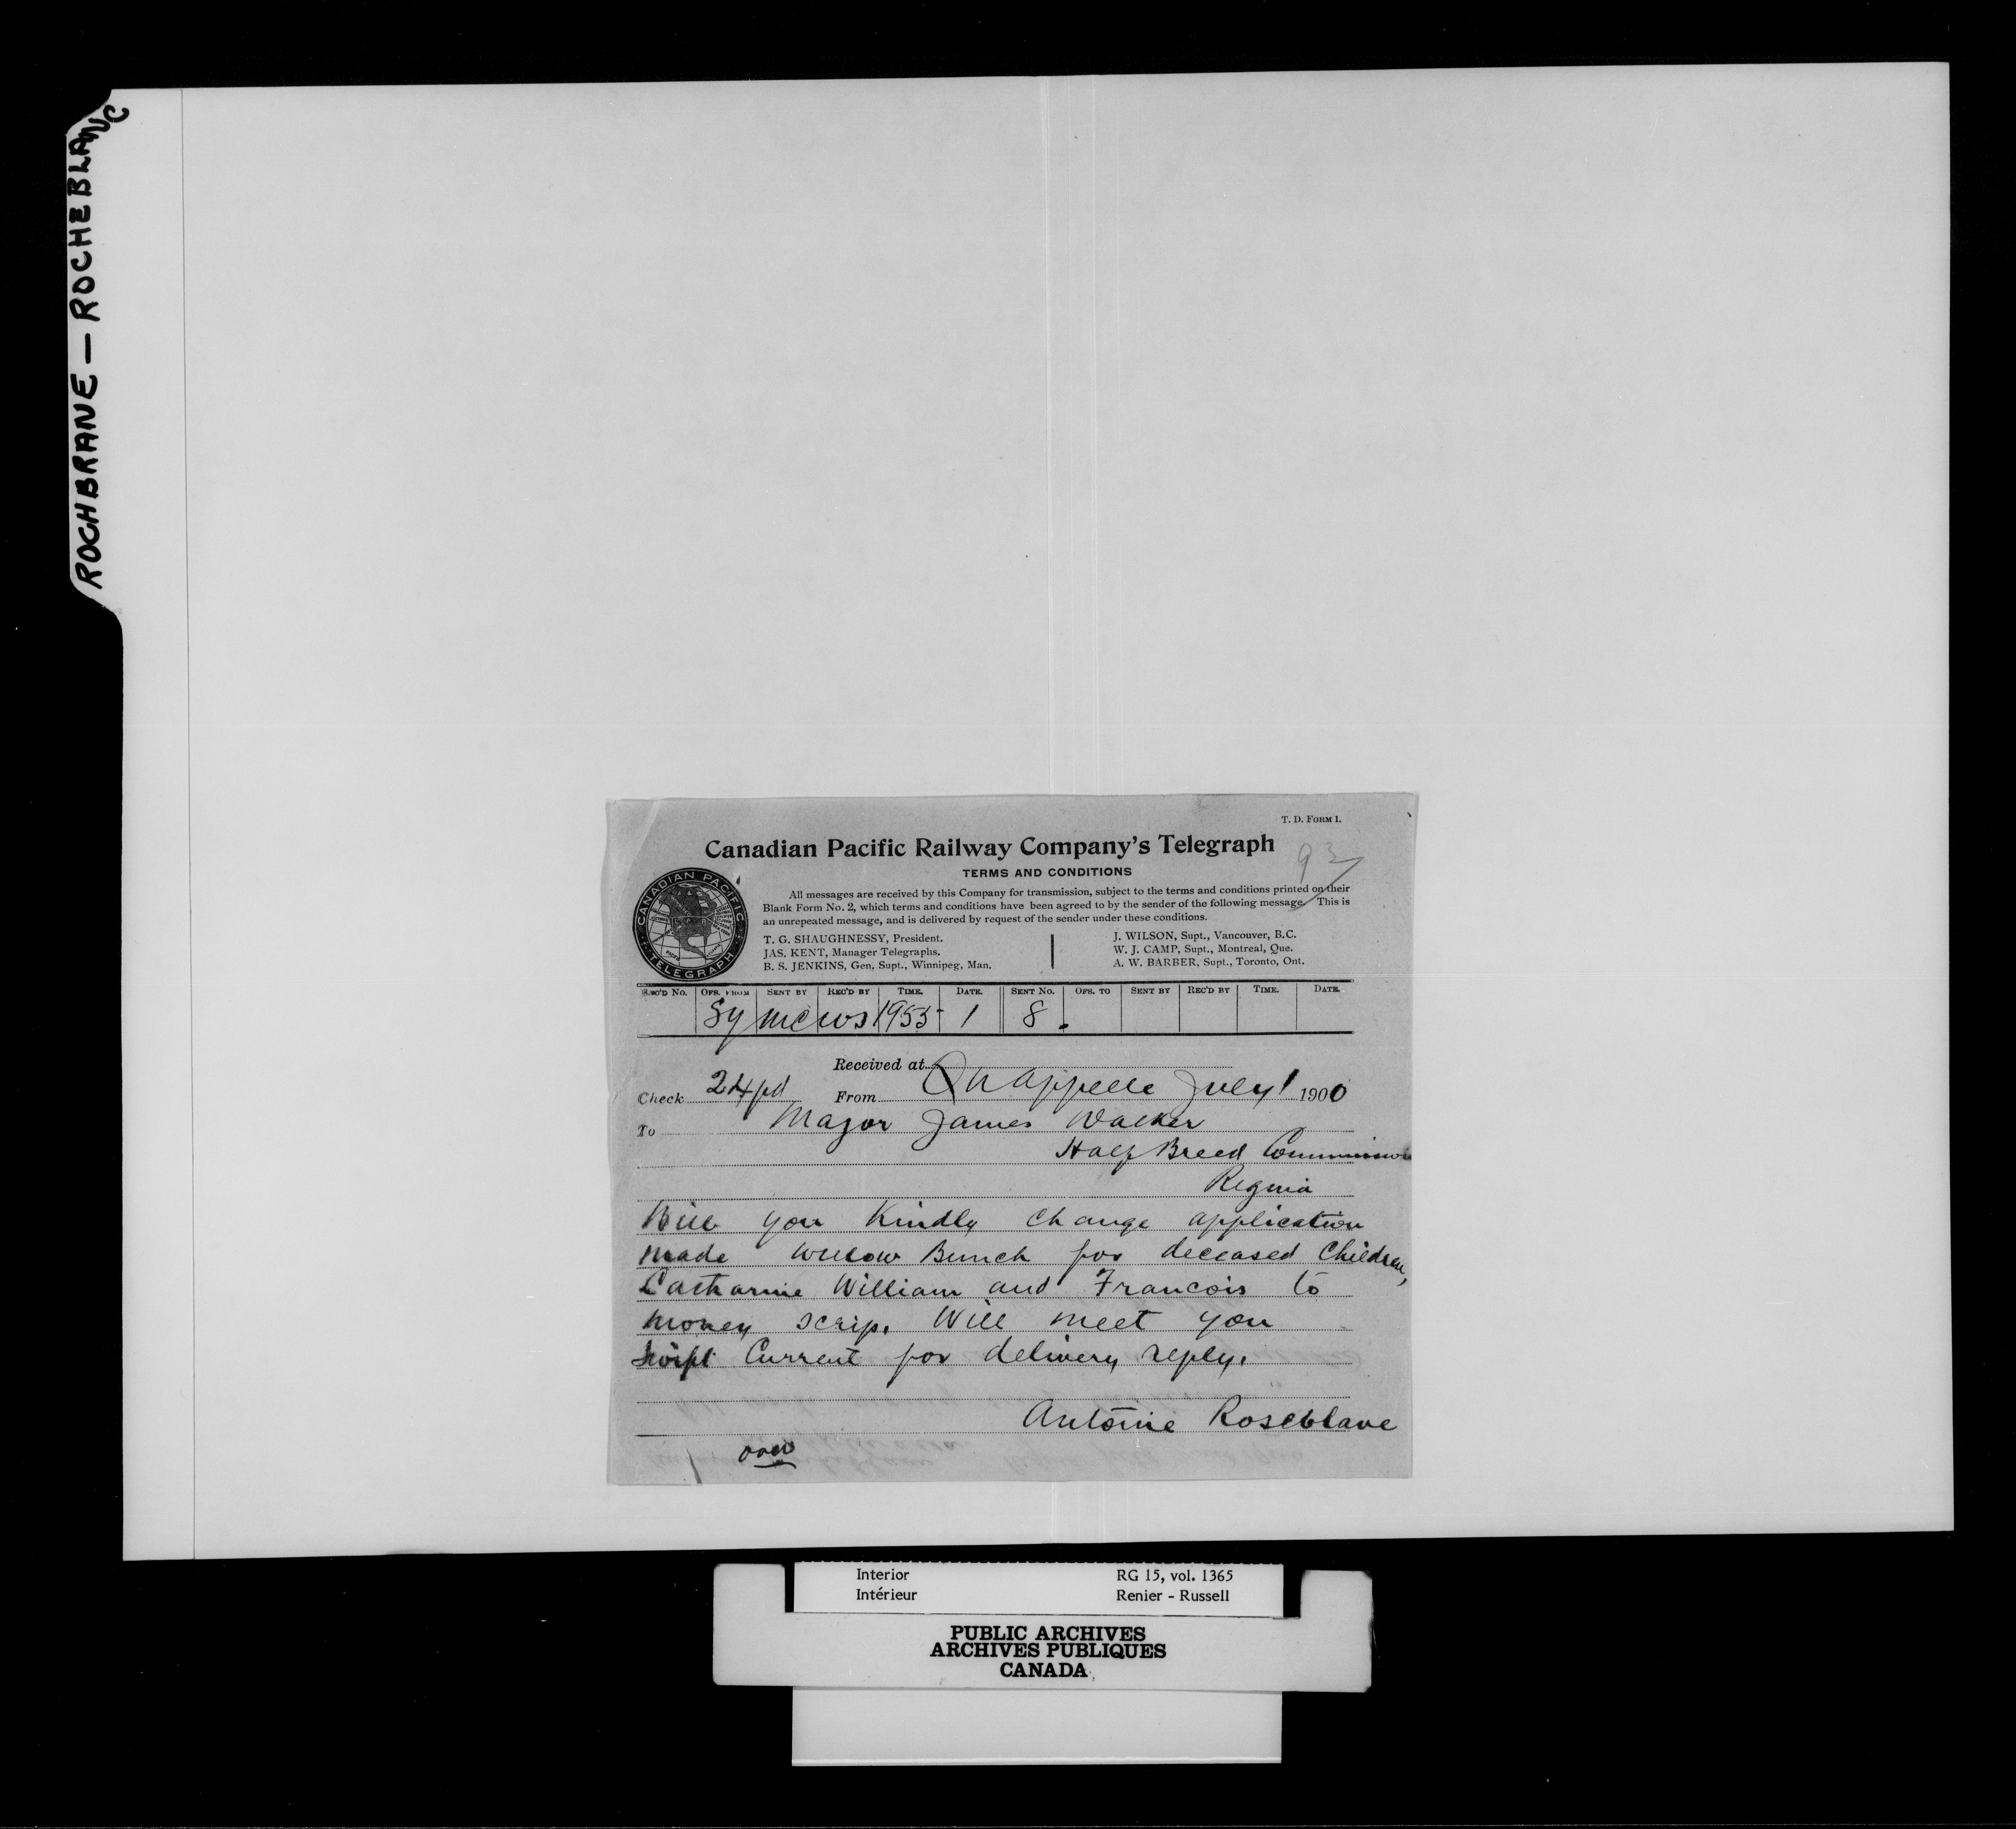 ROCHBRANE — ROCHEBLANC
T. D. FORM 1.
Canadian Pacific Railway Company's Telegraph
93
TERMS AND CONDITIONS
All messages are received by this Company for transmission, subject to the terms and conditions printed on their
Blank Form No. 2, which terms and conditions have been agreed to by the sender of the following message. This is
an unrepeated message, and is delivered by request of the sender under these conditions.
CANADIAN PACIFIC
TELEGRAPH
T. G. SHAUGHNESSY, President.
JAS. KENT, Manager Telegraphs.
B. S. JENKINS, Gen. Supt., Winnipeg, Man.
J. WILSON, Supt., Vancouver, B.C.
W. J. CAMP, Supt., Montreal, Que.
A. W. BARBER, Supt., Toronto, Ont.
REC'D No. OFS. FROM SENT BY REC'D BY TIME. DATE. SENT No. OFS. TO SENT BY REC'D BY TIME. DATE.
Sy mc ws 1955 1 8
Received at
Check 24 pd From Qu Appelle July 1 1900
To Major James Walker
Half Breed Commission
Regina
Will you Kindly change application
made Willow Bunch for deceased Children,
Catharine William and Francois to
money scrip. Will meet you
Swift Current for delivery reply.
Antoine Roseblave
over
Interior
Intérieur
RG 15, vol. 1365
Renier - Russell
PUBLIC ARCHIVES
ARCHIVES PUBLIQUES
CANADA